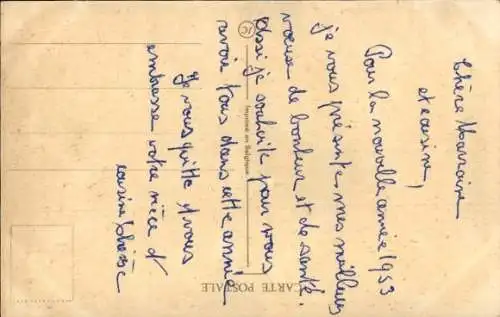 Chère Marraine
et cousine,
Pour la nouvelle année 1953
je vous présente mes meilleurs
voeuse de bonheur et de santé.
Assi je souhaite pour vous
avoir tous dans cette année
Je vous quitte et vous
embrasse votre nièce et
cousine
CARTE POSTALE
Imprimé en Belgique
JC